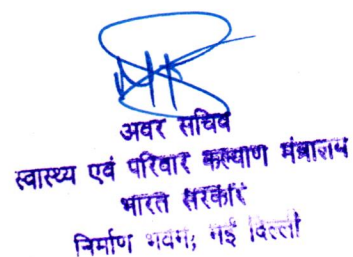 अवर सचिव
स्वास्थ्य एवं परिवार कल्याण मंत्रालय
भारत सरकार
निर्माण भवन, नई दिल्ली